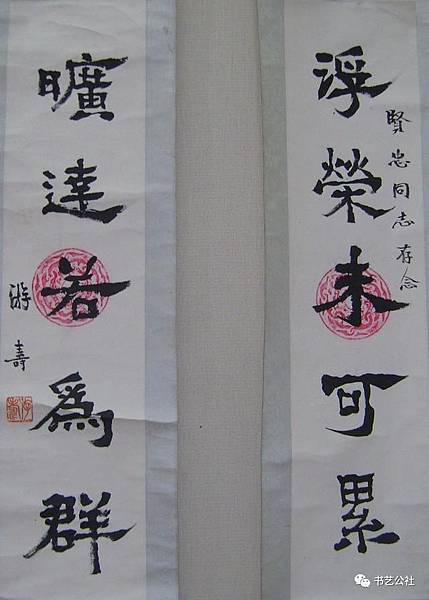 浮榮未可累
賢忠同志存念
曠達若為群
游壽
书艺公社